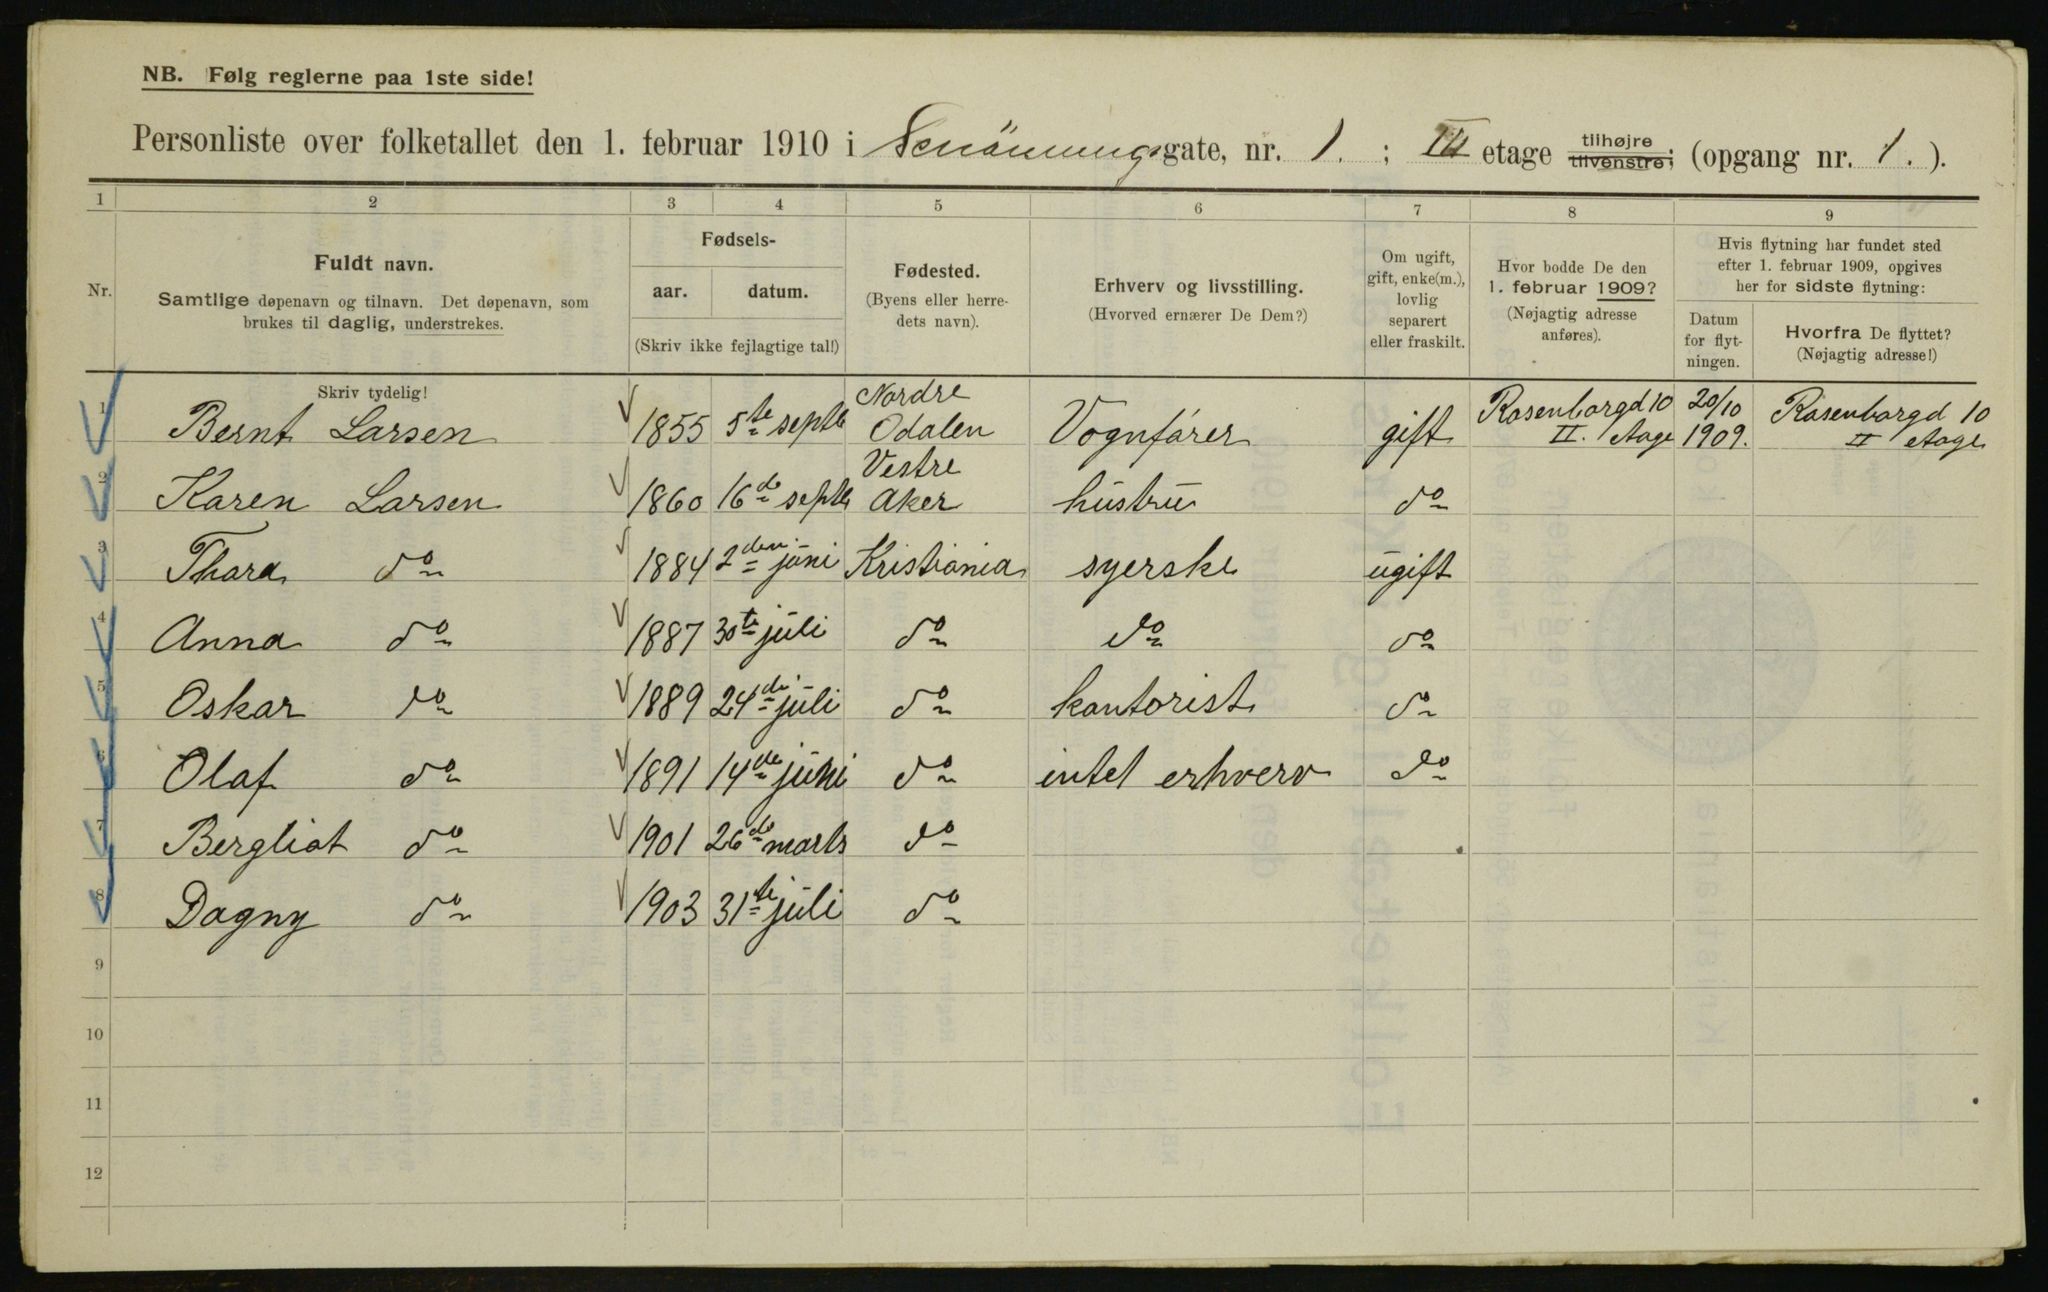 NB. Følg reglerne paa 1ste side!
Personliste over folketallet den 1. februar 1910 i Schönningsgate, nr. 1. ; III etage tilhøjre tilvenstre; (opgang nr. 1. ).
1 2 3 4 5 6 7 8 9
Nr.
Fuldt navn.
Samtlige døpenavn og tilnavn. Det døpenavn, som
brukes til daglig, understrekes.
Fødsels-
aar. datum.
(Skriv ikke fejlagtige tal!)
Fødested.
(Byens eller herre-
dets navn).
Erhverv og livsstilling.
(Hvorved ernærer De Dem?)
Om ugift,
gift, enke(m.),
lovlig
separert
eller fraskilt.
Hvor bodde De den
1. februar 1909?
(Nøjagtig adresse
anføres).
Hvis flytning har fundet sted
efter 1. februar 1909, opgives
her for sidste flytning:
Datum
for flyt-
ningen.
Hvorfra De flyttet?
(Nøjagtig adresse!)
Skriv tydelig!
1 Bernt Larsen 1855 5te septb Nordre Odalen Vognfører gift Rosenborgd 10 II. Etage 20/10 1909. Rosenborgd 10 II etage
2 Karen Larsen 1860 16de septb Vestre Aker hustru do
3 Thora do 1884 2den juni Kristiania syerske ugift
4 Anna do 1887 30te juli do do do
5 Oskar do 1889 24de juli do kontorist do
6 Olaf do 1891 14de juni do intet erhverv do
7 Bergliot do 1901 26de marts do
8 Dagny do 1903 31te juli do
9
10
11
12